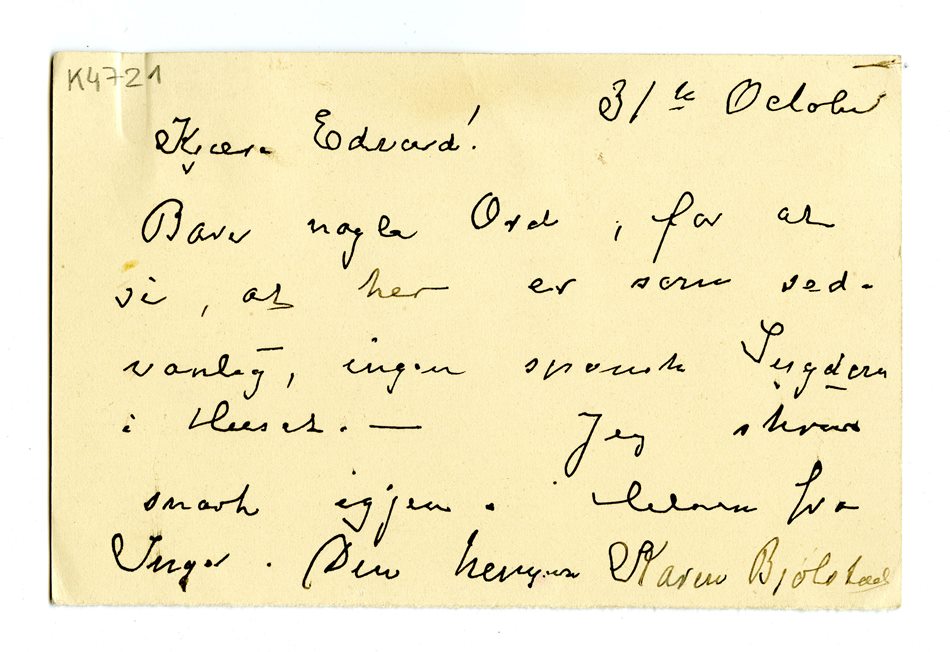 K4721
31te October
Kjære Edvard!
Bare nogle Ord, for at
si, at her er som sed-
vanlig, ingen spansk Sygdom
i Huset. — Jeg skriver
snart igjen. Hilsen fra
Inger. Din hengivne Karen Bjölstad